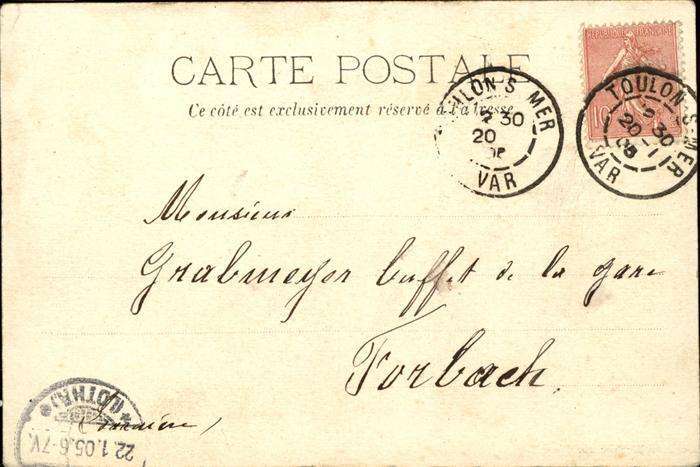 CARTE POSTALE
Ce côté est exclusivement réservé à l'adresse
REPUBLIQUE FRANÇAISE
10
TOULON S MER
2 30
20
05
VAR
TOULON S MER
2 30
20 -1
05
VAR
Monsieur
Grabmeyer buffet de la gare
Forbach
(Lorraine)
*(LOTHR.)*
22.1.05.6-7V.